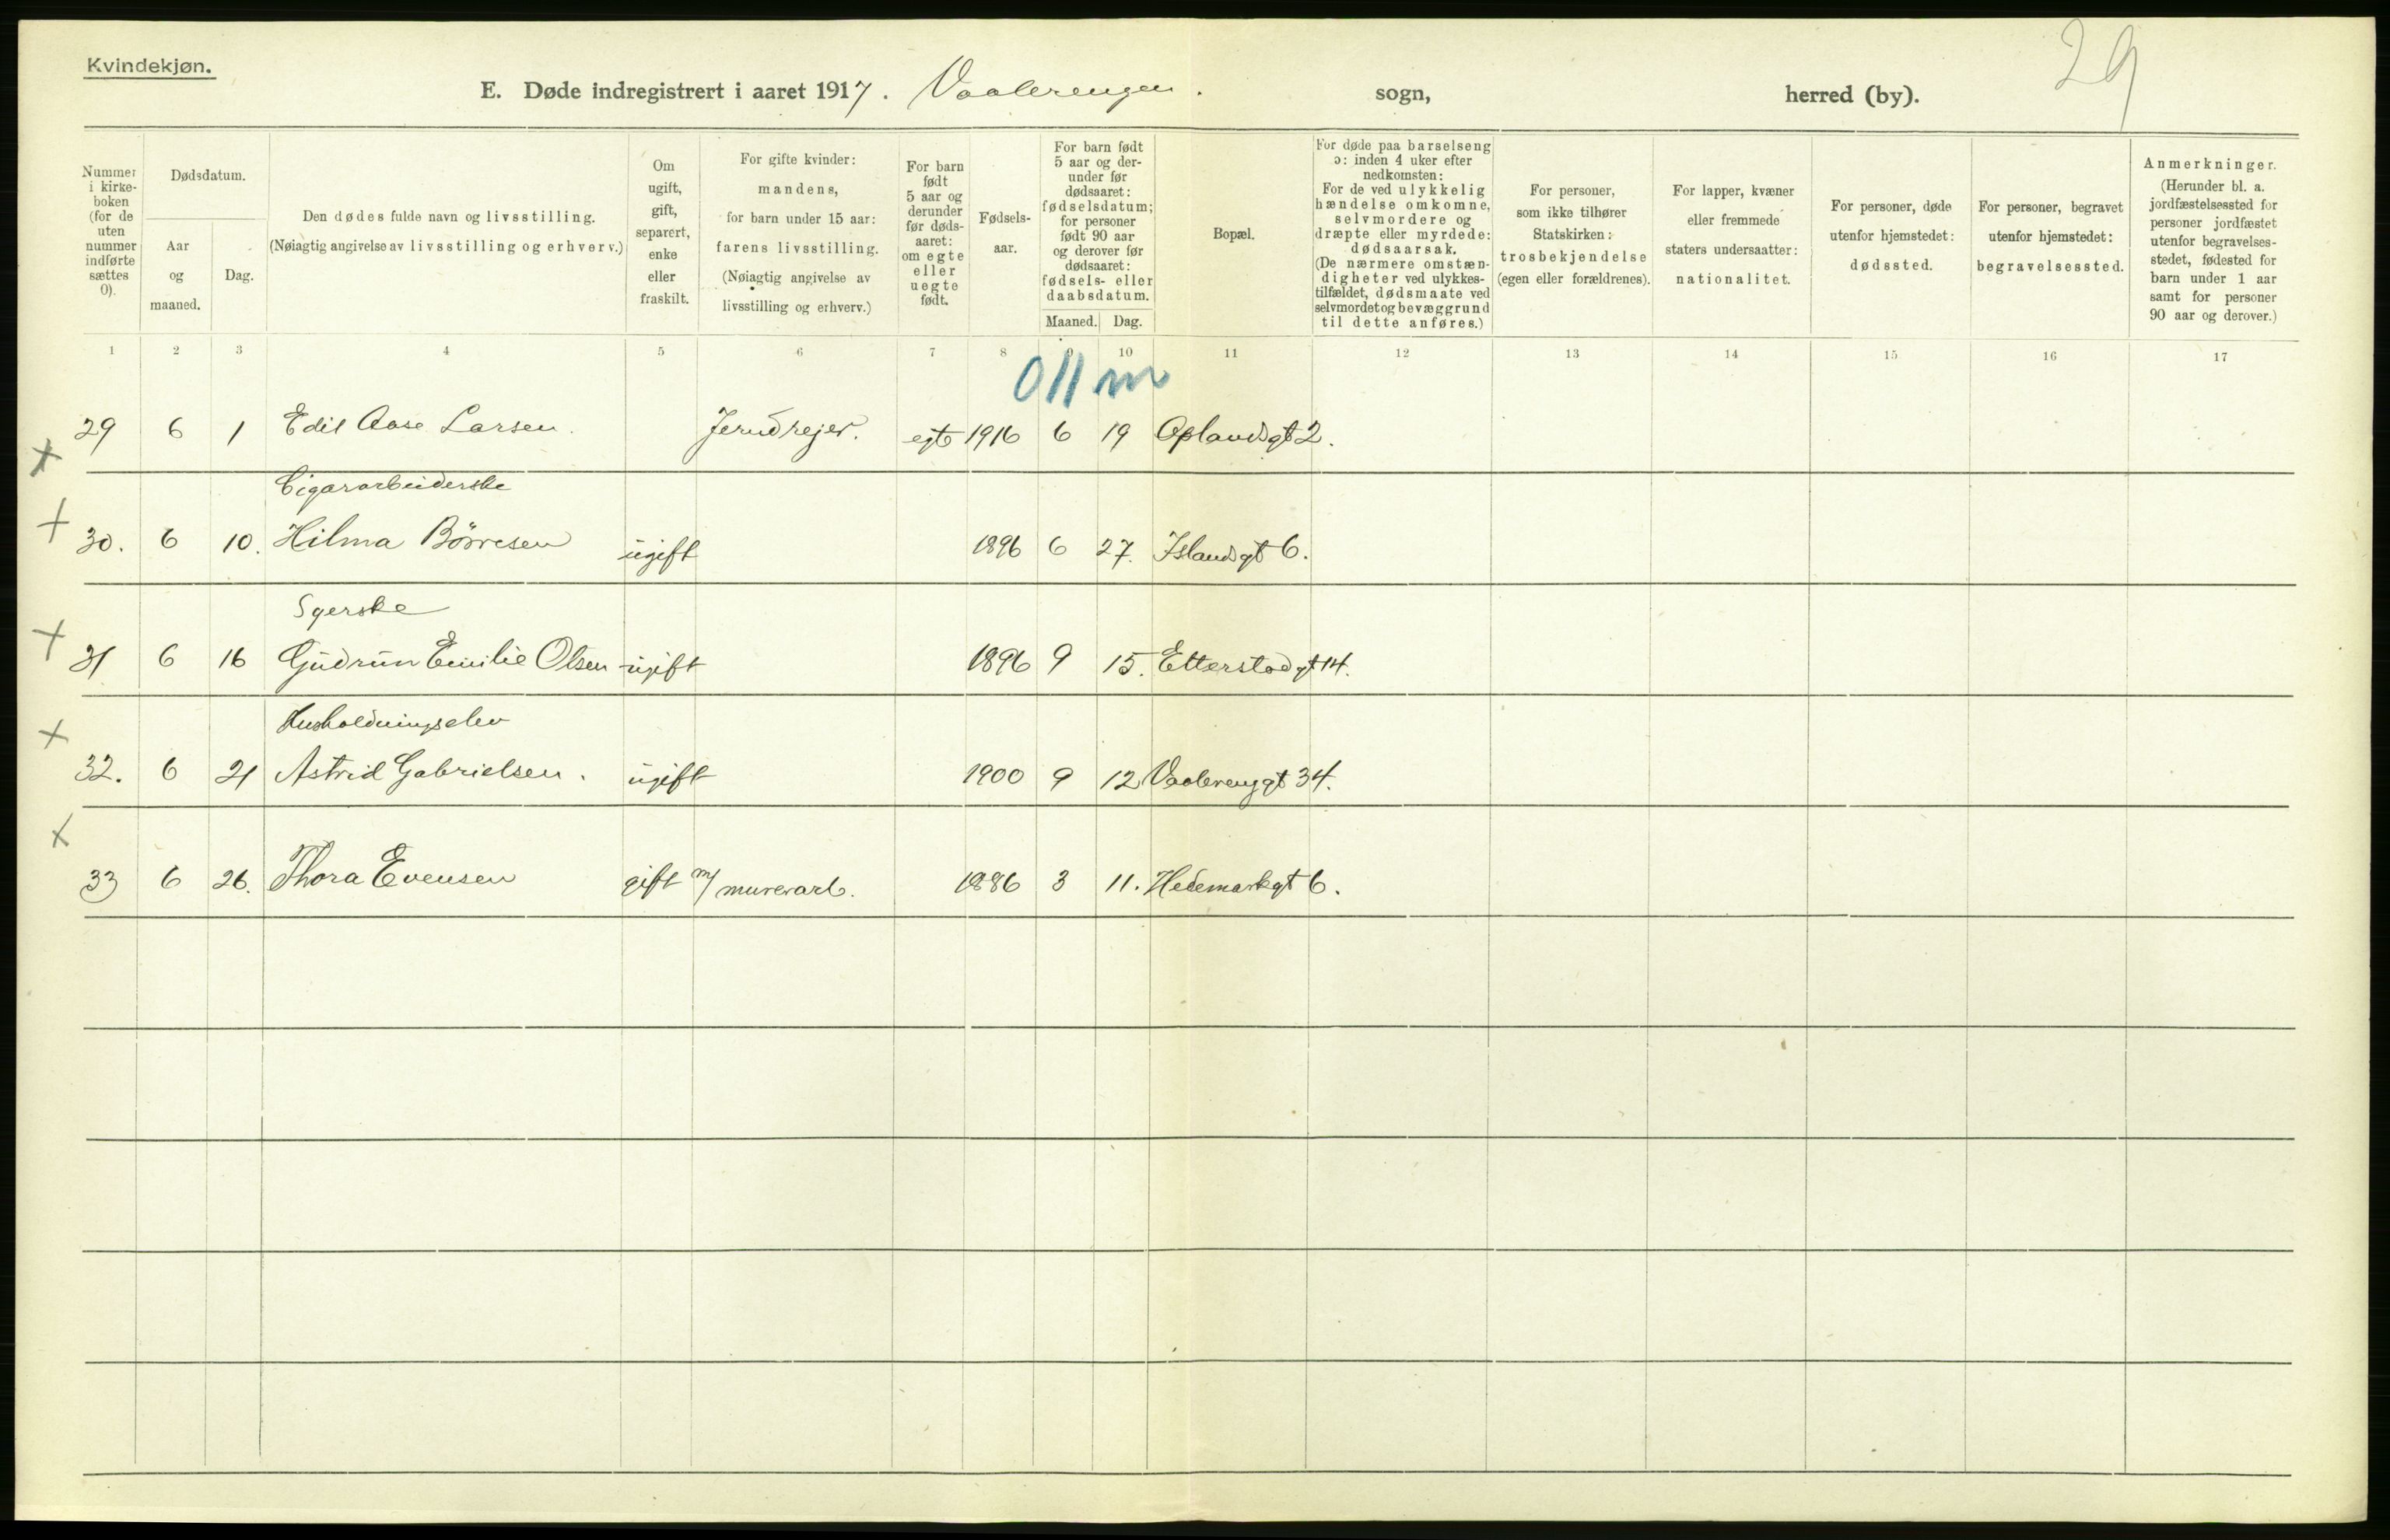 Kvindekjøn.
29
E. Døde indregistrert i aaret 1917. Vaalerengen. sogn, herred (by).
Nummer i kirke- boken (for de uten nummer indførte sættes 0).
Dødsdatum.
Aar og maaned.
Dag.
Den dødes fulde navn og livsstilling.
(Nøiagtig angivelse av livsstilling og erhverv.)
Om ugift, gift, separert, enke eller fraskilt.
For gifte kvinder: mandens, for barn under 15 aar: farens livsstilling. (Nøiagtig angivelse av livsstilling og erhverv.)
For barn født 5 aar og derunder før døds- aaret: om egte eller uegte født.
Fødsels- aar.
For barn født 5 aar og der- under før dødsaaret: fødselsdatum; for personer født 90 aar og derover før dødsaaret: fødsels- eller daabsdatum.
Maaned. Dag.
Bopæl.
For døde paa barselseng ɔ: inden 4 uker efter nedkomsten: For de ved ulykkelig hændelse omkomne, selvmordere og dræpte eller myrdede: dødsaarsak. (De nærmere omstæn- digheter ved ulykkes- tilfældet, dødsmaate ved selvmordet og bevæggrund til dette anføres.)
For personer, som ikke tilhører Statskirken: trosbekjendelse (egen eller forældrenes).
For lapper, kvæner eller fremmede staters undersaatter: nationalitet.
For personer, døde utenfor hjemstedet: dødssted.
For personer, begravet utenfor hjemstedet: begravelsessted.
Anmerkninger. (Herunder bl. a. jordfæstelsessted for personer jordfæstet utenfor begravelses- stedet, fødested for barn under 1 aar samt for personer 90 aar og derover.)
1 2 3 4 5 6 7 8 9 10 11 12 13 14 15 16 17
011 m
29 6 1 Edit Aase Larsen. Jerndrejer. egte 1916 6 19 Oplandsgt 2.
Cigararbeiderske
30. 6 10. Hilma Börresen ugift 1896 6 27. Islandsgt 6.
Syerske
31 6 16 Gudrun Emilie Olsen ugift 1896 9 15. Etterstadgt 14.
Husholdningselev
32. 6 21 Astrid Gabrielsen. ugift 1900 9 12 Vaalerenggt 34.
33 6 26. Thora Evensen gift m/ murerarb. 1886 3 11. Hedemarkgt 6.